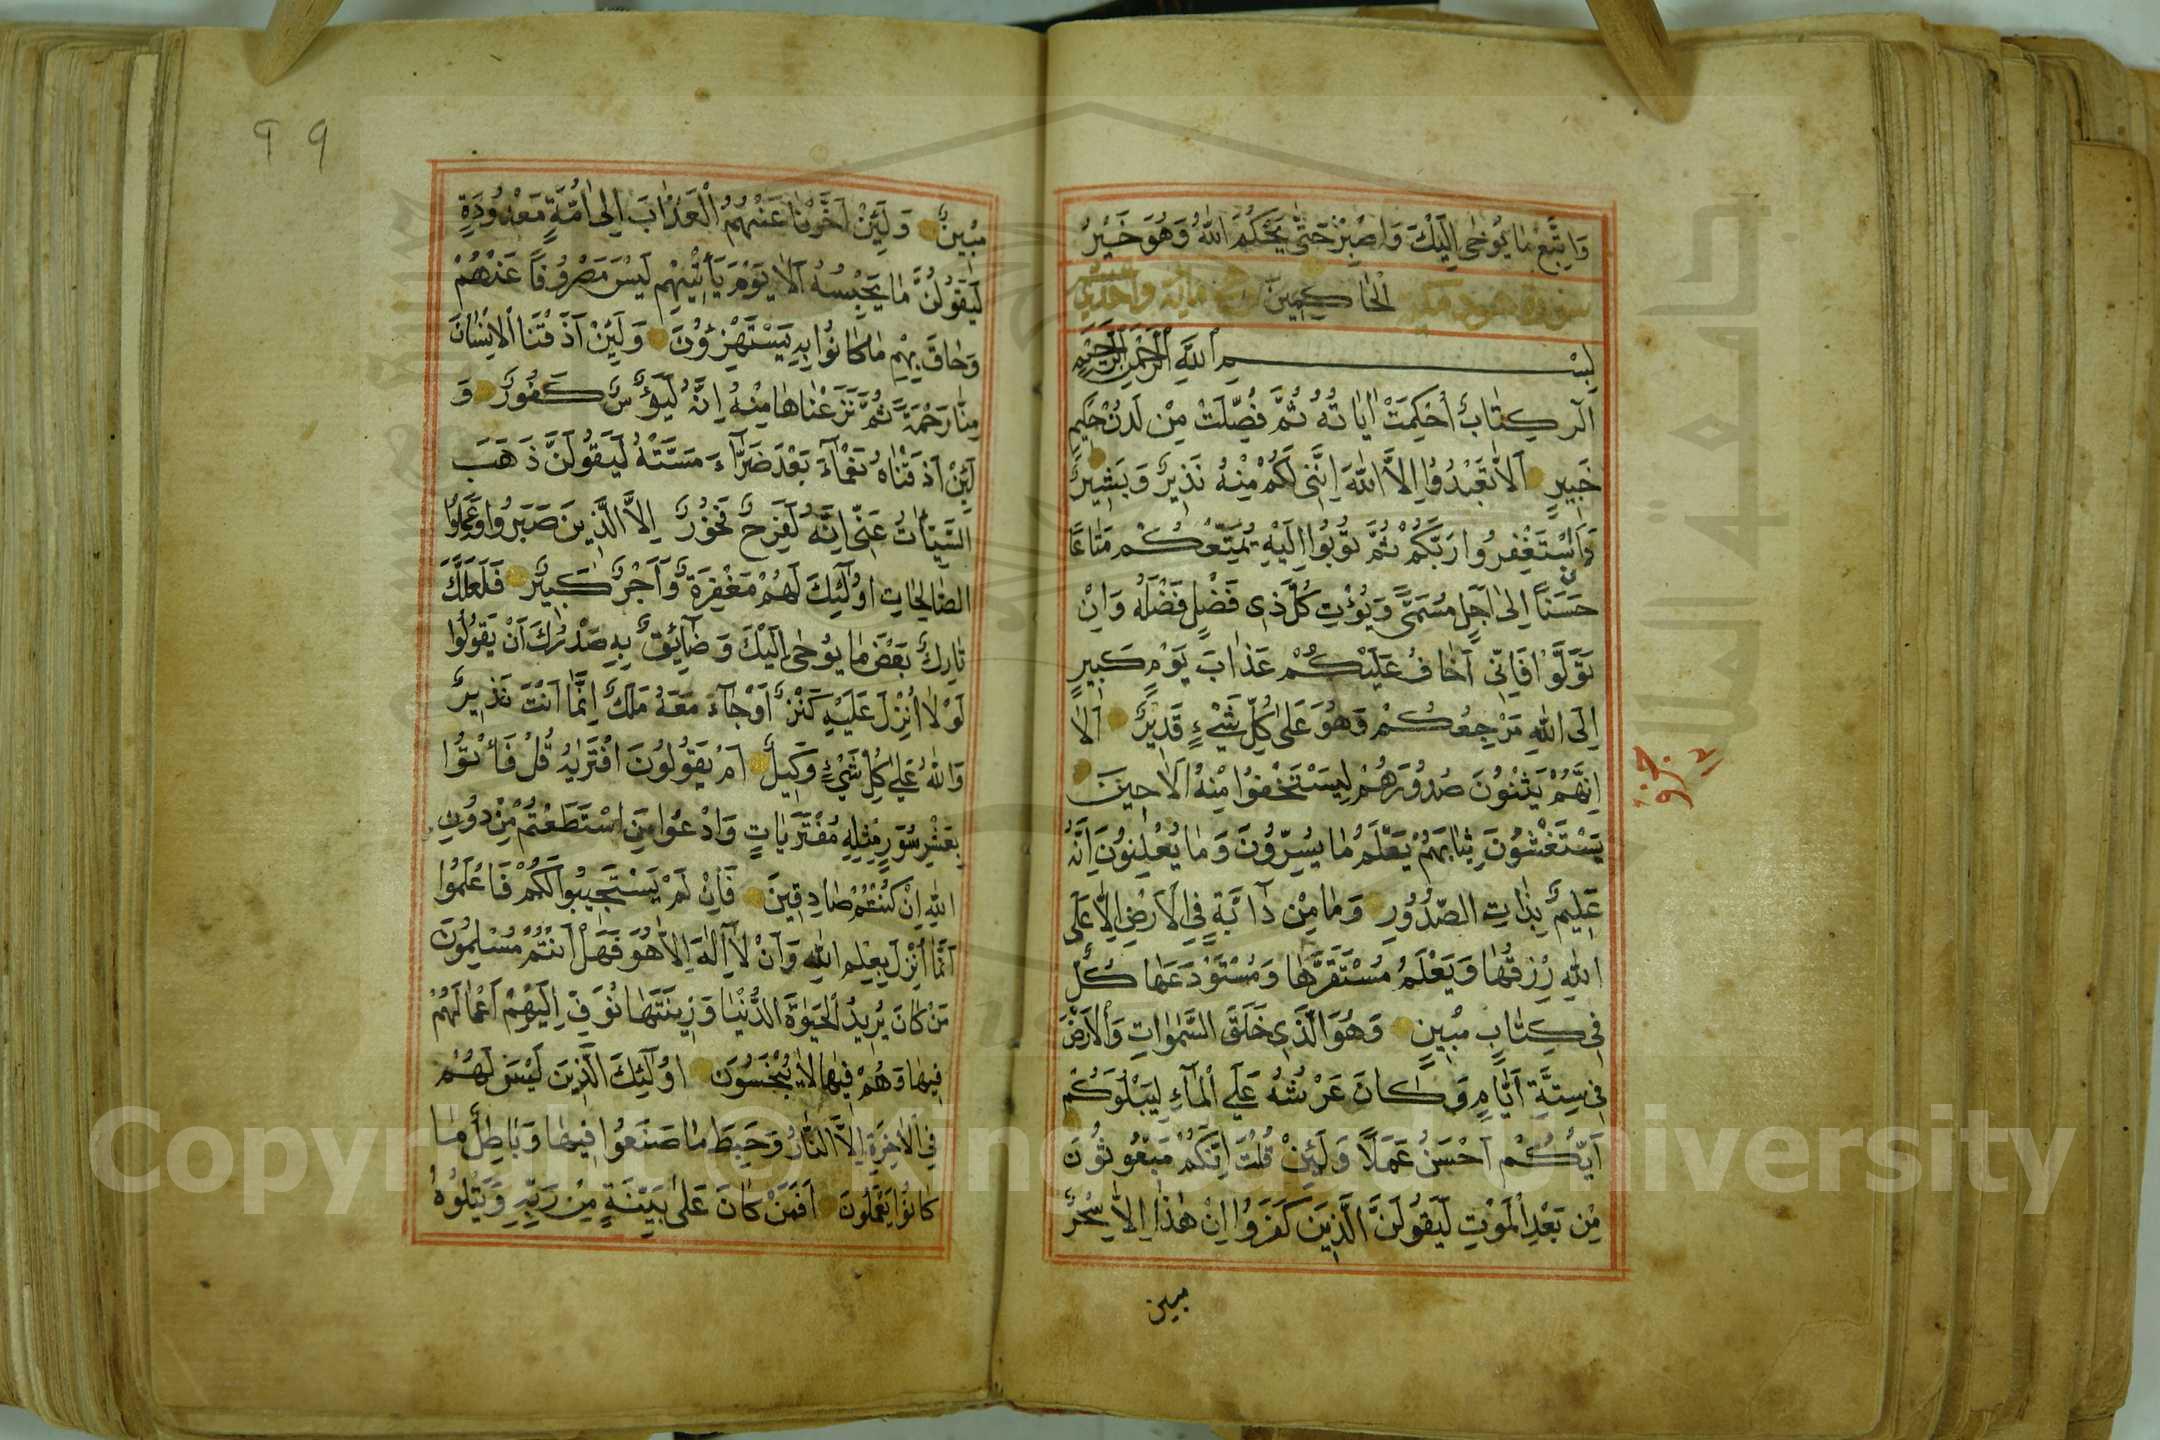 وَاتَّبِعْ مَا يُوحٰى اِلَيْكَ وَاصْبِرْ حَتّٰى يَحْكُمَ اللّٰهُ وَهُوَ خَيْرُ
سورة هود مكية الْحَاكِمِينَ مائة واحدى
بِسْمِ اللّٰهِ الرَّحْمٰنِ الرَّحِيمِ
الٓرٰ كِتَابٌ اُحْكِمَتْ اٰيَاتُهُ ثُمَّ فُصِّلَتْ مِنْ لَدُنْ حَكِيمٍ
خَبِيرٍ اَلَّا تَعْبُدُوا اِلَّا اللّٰهَ اِنَّنِى لَكُمْ مِنْهُ نَذِيرٌ وَبَشِيرٌ
وَاَنِ اسْتَغْفِرُوا رَبَّكُمْ ثُمَّ تُوبُوا اِلَيْهِ يُمَتِّعْكُمْ مَتَاعًا
حَسَنًا اِلٰى اَجَلٍ مُسَمًّى وَيُؤْتِ كُلَّ ذِى فَضْلٍ فَضْلَهُ وَاِنْ
تَوَلَّوْا فَاِنِّى اَخَافُ عَلَيْكُمْ عَذَابَ يَوْمٍ كَبِيرٍ
اِلَى اللّٰهِ مَرْجِعُكُمْ وَهُوَ عَلٰى كُلِّ شَيْءٍ قَدِيرٌ اَلَا
اِنَّهُمْ يَثْنُونَ صُدُورَهُمْ لِيَسْتَخْفُوا مِنْهُ اَلَا حِينَ
يَسْتَغْشُونَ ثِيَابَهُمْ يَعْلَمُ مَا يُسِرُّونَ وَمَا يُعْلِنُونَ اِنَّهُ
عَلِيمٌ بِذَاتِ الصُّدُورِ وَمَا مِنْ دَابَّةٍ فِى الْاَرْضِ اِلَّا عَلَى
اللّٰهِ رِزْقُهَا وَيَعْلَمُ مُسْتَقَرَّهَا وَمُسْتَوْدَعَهَا كُلٌّ
فِى كِتَابٍ مُبِينٍ وَهُوَ الَّذِى خَلَقَ السَّمٰوَاتِ وَالْاَرْضَ
فِى سِتَّةِ اَيَّامٍ وَكَانَ عَرْشُهُ عَلَى الْمَاءِ لِيَبْلُوَكُمْ
اَيُّكُمْ اَحْسَنُ عَمَلًا وَلَئِنْ قُلْتَ اِنَّكُمْ مَبْعُوثُونَ
مِنْ بَعْدِ الْمَوْتِ لَيَقُولَنَّ الَّذِينَ كَفَرُوا اِنْ هٰذَا اِلَّا سِحْرٌ
مبين
٩٩
مُبِينٌ وَلَئِنْ اَخَّرْنَا عَنْهُمُ الْعَذَابَ اِلٰى اُمَّةٍ مَعْدُودَةٍ
لَيَقُولُنَّ مَا يَحْبِسُهُ اَلَا يَوْمَ يَأْتِيهِمْ لَيْسَ مَصْرُوفًا عَنْهُمْ
وَحَاقَ بِهِمْ مَا كَانُوا بِهِ يَسْتَهْزِؤُنَ وَلَئِنْ اَذَقْنَا الْاِنْسَانَ
مِنَّا رَحْمَةً ثُمَّ نَزَعْنَاهَا مِنْهُ اِنَّهُ لَيَؤُسٌ كَفُورٌ وَ
لَئِنْ اَذَقْنَاهُ نَعْمَاءَ بَعْدَ ضَرَّاءَ مَسَّتْهُ لَيَقُولَنَّ ذَهَبَ
السَّيِّئَاتُ عَنِّى اِنَّهُ لَفَرِحٌ فَخُورٌ اِلَّا الَّذِينَ صَبَرُوا وَعَمِلُوا
الصَّالِحَاتِ اُولٰئِكَ لَهُمْ مَغْفِرَةٌ وَاَجْرٌ كَبِيرٌ فَلَعَلَّكَ
تَارِكٌ بَعْضَ مَا يُوحٰى اِلَيْكَ وَضَائِقٌ بِهِ صَدْرُكَ اَنْ يَقُولُوا
لَوْلَا اُنْزِلَ عَلَيْهِ كَنْزٌ اَوْ جَاءَ مَعَهُ مَلَكٌ اِنَّمَا اَنْتَ نَذِيرٌ
وَاللّٰهُ عَلٰى كُلِّ شَيْءٍ وَكِيلٌ اَمْ يَقُولُونَ افْتَرٰيهُ قُلْ فَأْتُوا
بِعَشْرِ سُوَرٍ مِثْلِهِ مُفْتَرَيَاتٍ وَادْعُوا مَنِ اسْتَطَعْتُمْ مِنْ دُونِ
اللّٰهِ اِنْ كُنْتُمْ صَادِقِينَ فَاِنْ لَمْ يَسْتَجِيبُوا لَكُمْ فَاعْلَمُوا
اَنَّمَا اُنْزِلَ بِعِلْمِ اللّٰهِ وَاَنْ لَا اِلٰهَ اِلَّا هُوَ فَهَلْ اَنْتُمْ مُسْلِمُونَ
مَنْ كَانَ يُرِيدُ الْحَيٰوةَ الدُّنْيَا وَزِينَتَهَا نُوَفِّ اِلَيْهِمْ اَعْمَالَهُمْ
فِيهَا وَهُمْ فِيهَا لَا يُبْخَسُونَ اُولٰئِكَ الَّذِينَ لَيْسَ لَهُمْ
فِى الْاٰخِرَةِ اِلَّا النَّارُ وَحَبِطَ مَا صَنَعُوا فِيهَا وَبَاطِلٌ مَا
كَانُوا يَعْمَلُونَ اَفَمَنْ كَانَ عَلٰى بَيِّنَةٍ مِنْ رَبِّهِ وَيَتْلُوهُ
Copyright © King Saud University